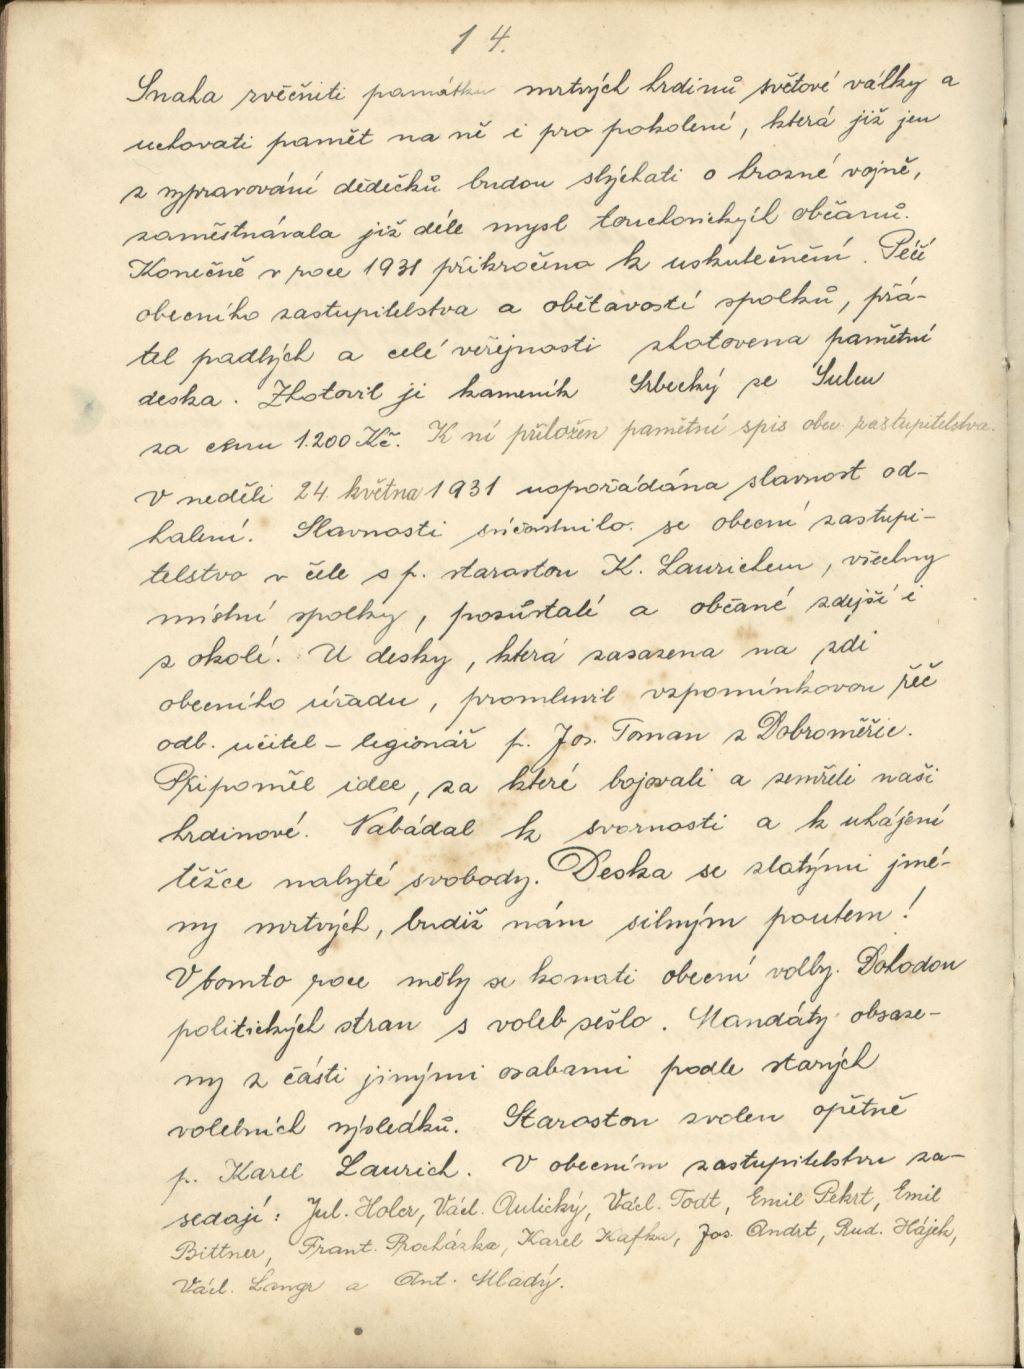 14.
Snaha zvěčniti památku mrtvých hrdinů světové války a
uchovati pamět na ně i pro pokolení, která již jen
z vypravování dědečků budou slýchati o hrozné vojně,
zaměstnávala již déle mysl touchovických občanů.
Konečně v roce 1931 přikročeno k uskutečnění. Péčí
obecního zastupitelstva a obětavostí spolků, přá-
tel padlých a celé veřejnosti zhotovena pamětní
deska. Zhotovil ji kameník Srbecký ze Sulce
za cenu 1.200 Kč. K ní přiložen pamětní spis obec. zastupitelstva.
V neděli 24. května 1931 uspořádána slavnost od-
halení. Slavnosti súčastnilo se obecní zastupi-
telstvo v čele s p. starostou K. Laurichem, všechny
místní spolky, pozůstalí a občané zdejší i
z okolí. U desky, která zasazena na zdi
obecního úřadu, promluvil vzpomínkovou řeč
odb. učitel - legionář p. Jos. Toman z Dobroměřic.
Připoměl idee, za které bojovali a zemřeli naši
hrdinové. Nabádal k svornosti a k uhájení
těžce nabyté svobody. Deska se zlatými jmé-
ny mrtvých, budiž nám silným poutem!
V tomto roce měly se konati obecní volby. Dohodou
politických stran s voleb sešlo. Mandáty obsaze-
ny z části jinými osobami podle starých
volebních výsledků. Starostou zvolen opětně
p. Karel Laurich. V obecním zastupitelstvu za-
sedají: Jul. Holer, Václ. Aulický, Václ. Todt, Emil Pekrt, Emil
Bittner, Frant. Procházka, Karel Kafka, Jos. Andrt, Rud. Hájek,
Václ. Langr a Ant. Mladý.